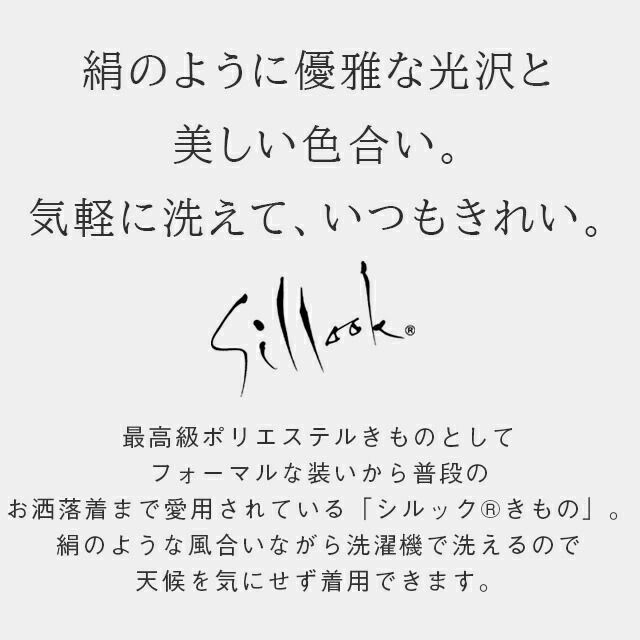 絹のように優雅な光沢と
美しい色合い。
気軽に洗えて、いつもきれい。
Sillook®
最高級ポリエステルきものとして
フォーマルな装いから普段の
お洒落着まで愛用されている「シルック®きもの」。
絹のような風合いながら洗濯機で洗えるので
天候を気にせず着用できます。